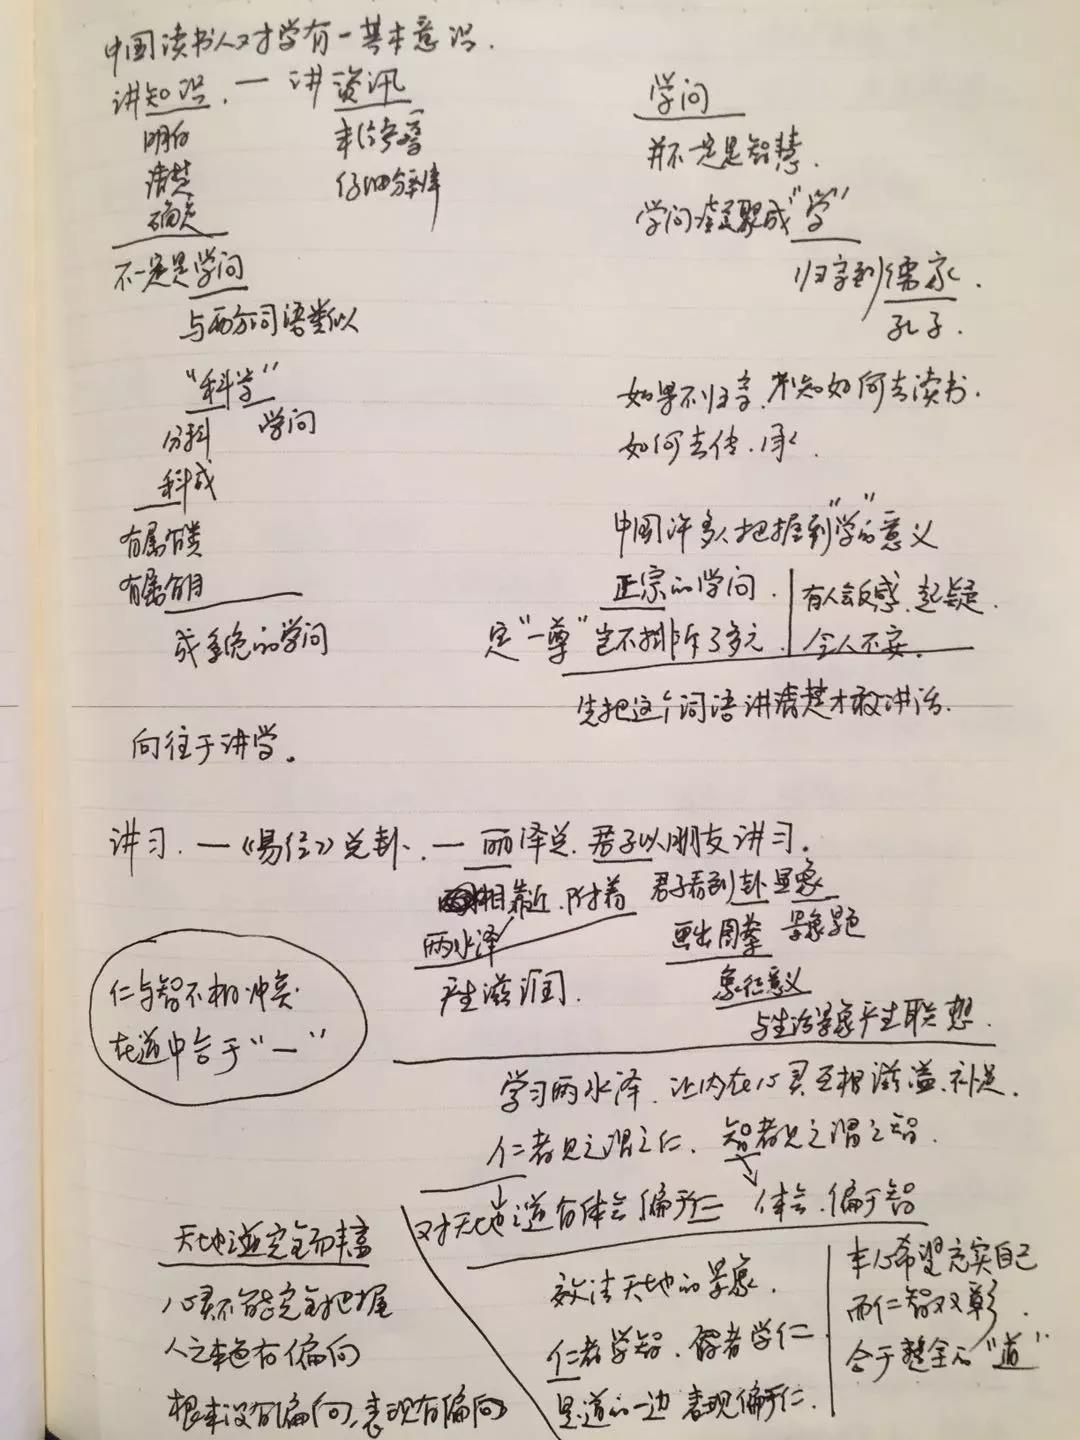 中国读书人对学有一基本意识.
讲知识. — 讲资讯
明白
清楚
确定
丰富
仔细分
不一定是学问
与西方词语类似
"科学"
分科 学问
科成
有属有类
有属有目
成系统的学问
向往于讲学。
学问
并不一定是智慧.
学问凝聚成"学"
归宗到儒家.
孔子.
如果不归宗, 不知如何去读书.
如何去传、承.
中国许多人把握到"学"的意义
正宗的学问.
有人会反感、起疑.
定"一尊"岂不排斥了多元.
令人不安.
先把这个词语讲清楚才敢讲话.
讲习. —《易经》兑卦. — 丽泽兑. 君子以朋友讲习.
相靠近、附着
两水泽
产生滋润.
君子看到卦显象
画出图案 景象
象征意义
与生活景象产生联想.
仁与智不相冲突.
在道中合于"一"
学习两水泽. 让内在心灵互相滋溢、补足.
仁者见之谓之仁. 智者见之谓之智.
对天地之道有体会偏于仁 体会.偏于智
天地之道完全而丰富
心灵不能完全把握
人之本色有偏向
根本没有偏向, 表现有偏向
效法天地的景象.
仁者学智. 智者学仁
是道的一边 表现偏于仁.
本心希望充实自己
而仁智双彰.
合于整全的"道"